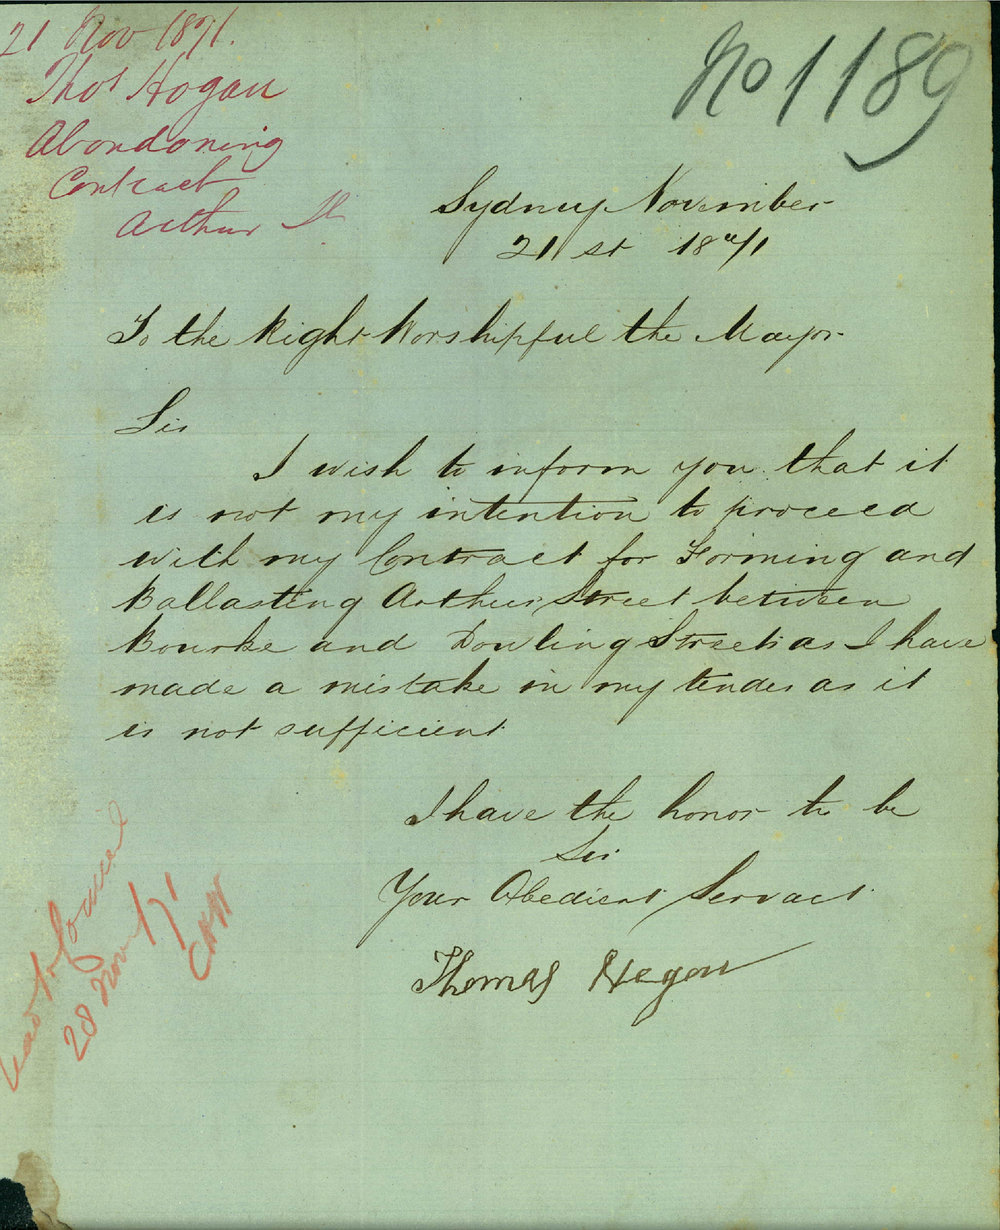 21 Nov 1871.
Thos Hogan
Abandoning
Contract
Arthur St
No 1189
Sydney November
21st 1871
To the Right Worshipful the Mayor
Sir
I wish to inform you that it
is not my intention to proceed
with my Contract for Forming and
Ballasting Arthur Street between
Bourke and Dowling Streets as I have
made a mistake in my tender as it
is not sufficient
I have the honor to be
Sir
Your Obedient Servant
Thomas Hogan
Read to Council
28 Nov 71